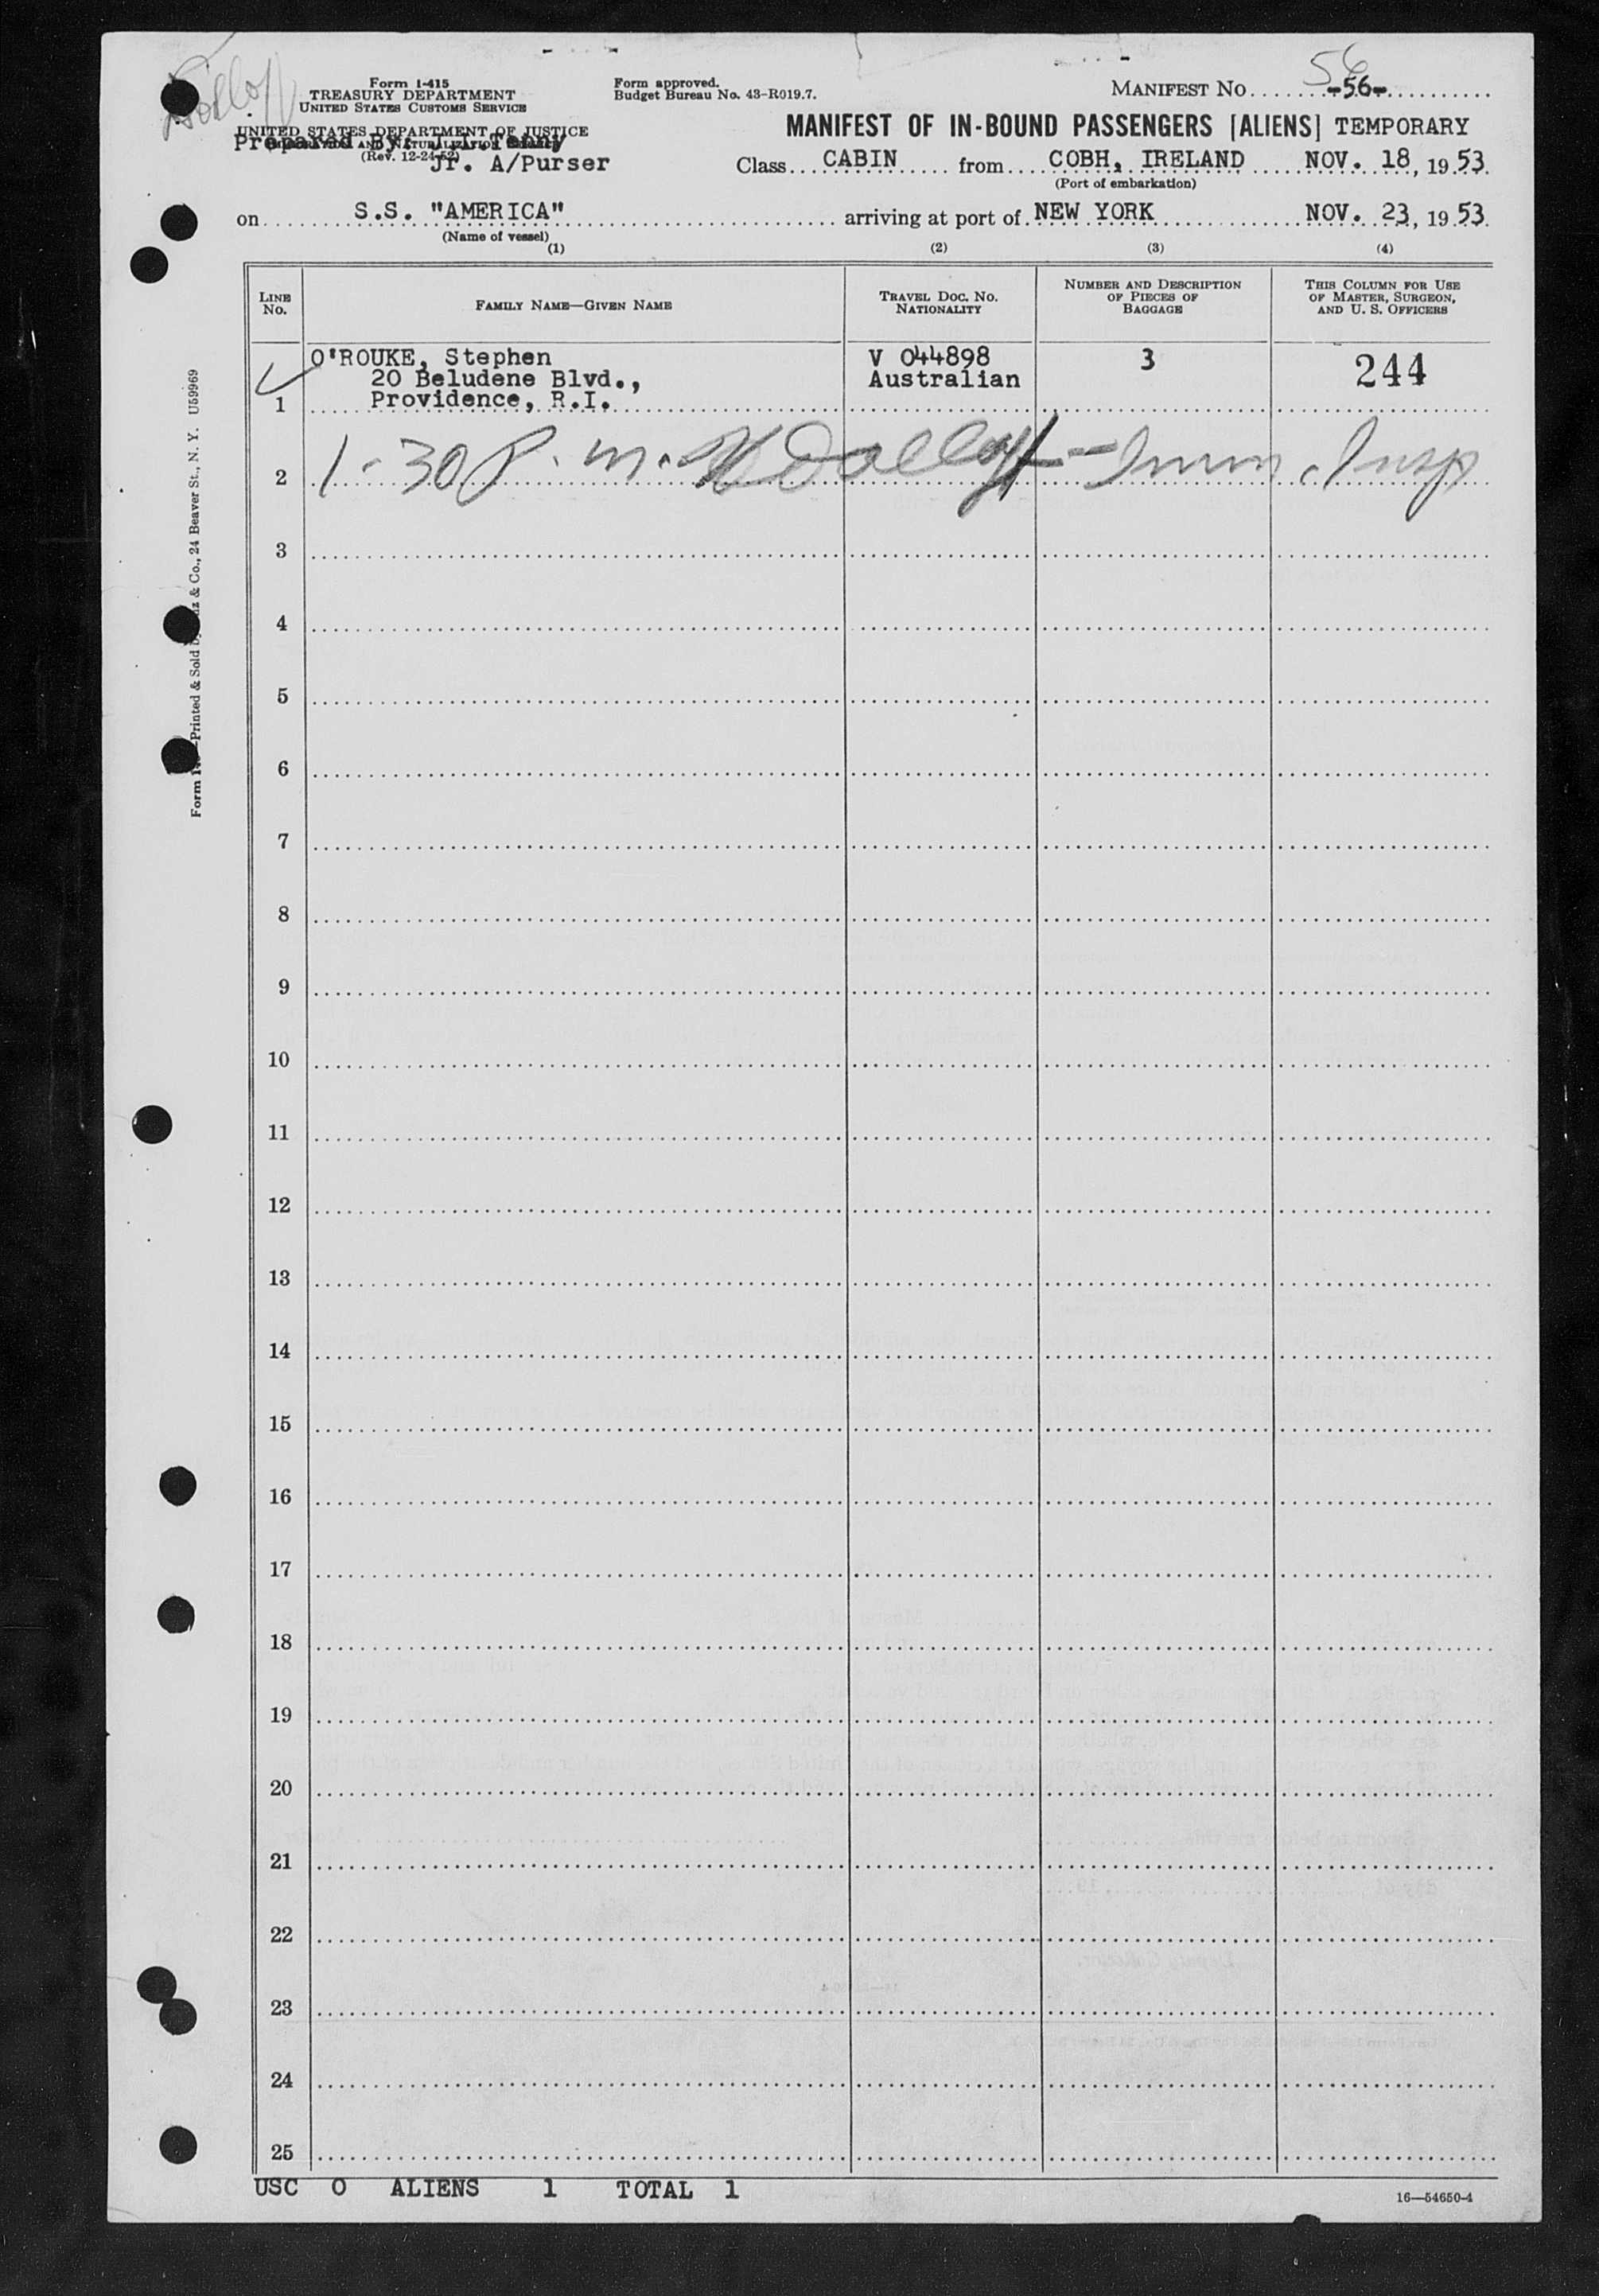 56
Form I-415
TREASURY DEPARTMENT
UNITED STATES CUSTOMS SERVICE
Form approved.
Budget Bureau No. 43-R019.7.
MANIFEST NO. -56-
UNITED STATES DEPARTMENT OF JUSTICE
Prepared By: Tenny
(Rev. 12-24-52)
Jr. A/Purser
MANIFEST OF IN-BOUND PASSENGERS [ALIENS] TEMPORARY
Class CABIN from COBH, IRELAND NOV. 18, 1953
(Port of embarkation)
on S.S. "AMERICA" arriving at port of NEW YORK NOV. 23, 1953
(Name of vessel)
(1) (2) (3) (4)
LINE NO.
FAMILY NAME—GIVEN NAME
TRAVEL DOC. NO. NATIONALITY
NUMBER AND DESCRIPTION OF PIECES OF BAGGAGE
THIS COLUMN FOR USE OF MASTER, SURGEON, AND U. S. OFFICERS
O'ROUKE, Stephen V 044898 3 244
20 Beludene Blvd., Australian
1 Providence, R.I.
2 1-30 P.m. Dolloff - Imm. Insp
3
4
5
6
7
8
9
10
11
12
13
14
15
16
17
18
19
20
21
22
23
24
25
USC 0 ALIENS 1 TOTAL 1
16—54650-4
Printed & Sold & Co., 24 Beaver St., N. Y. U59969